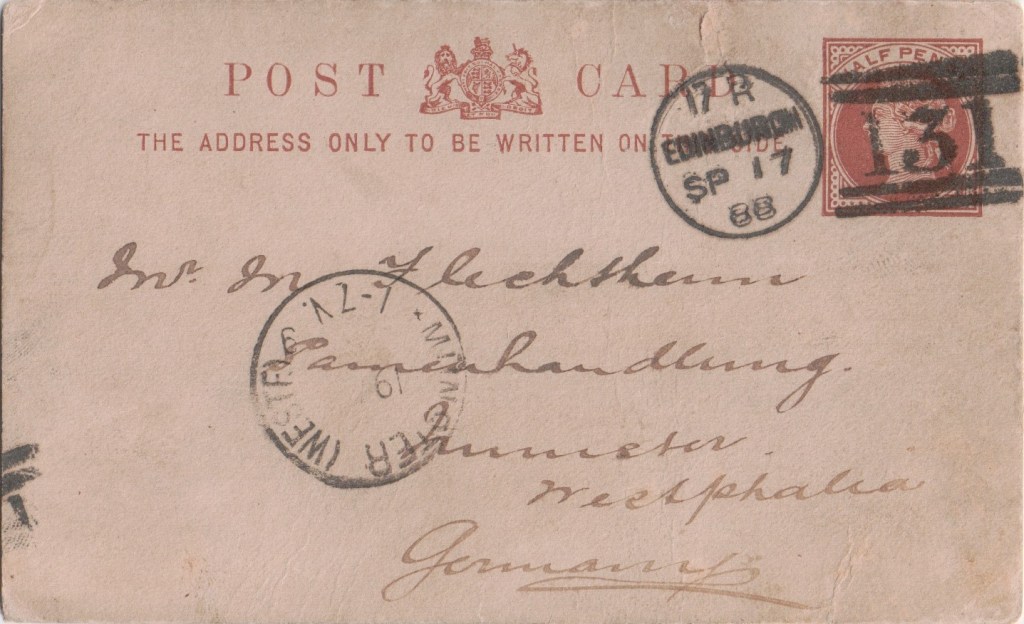 POST CARD
THE ADDRESS ONLY TO BE WRITTEN ON SIDE
HALF PENNY
131
17 R
EDINBURGH
SP 17
88
Mr. M Flechtheim
Samenhandlung.
Munster.
Westphalia
Germany
MUNSTER (WESTF)
19